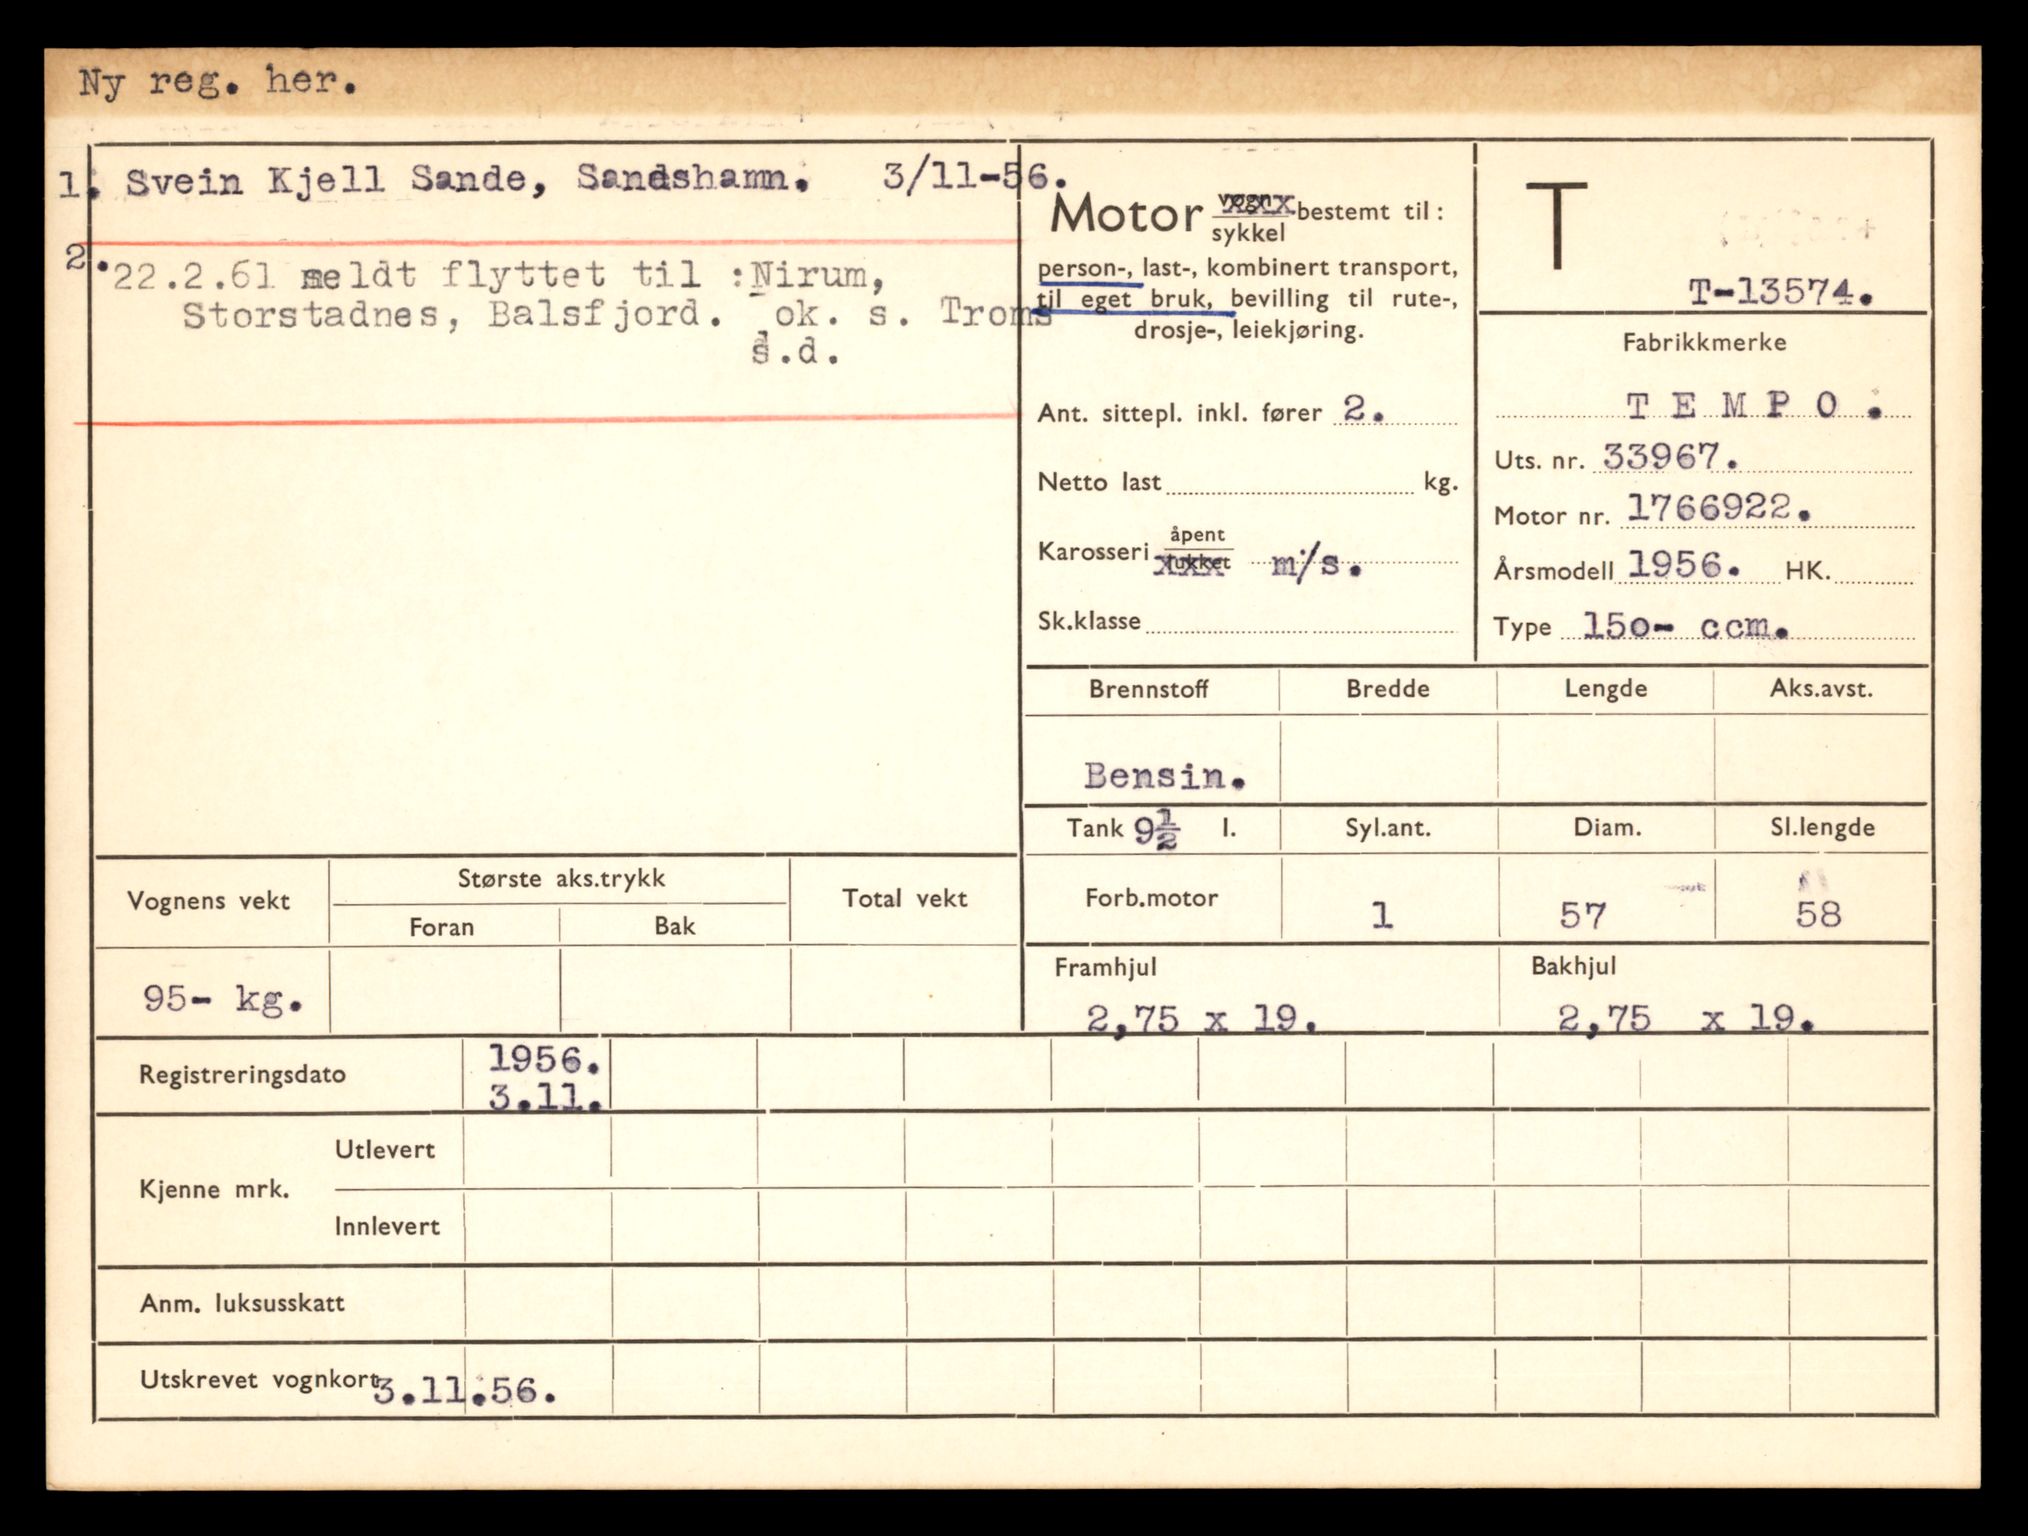 Ny reg. her.
1. Svein Kjell Sande, Sandshamn. 3/11-56.
2. 22.2.61 meldt flyttet til : Nirum,
Storstadnes, Balsfjord. ok. s. Troms
s.d.
Motor vogn bestemt til :
sykkel
person-, last-, kombinert transport,
til eget bruk, bevilling til rute-,
drosje-, leiekjøring.
Ant. sittepl. inkl. fører 2.
Netto last kg.
Karosseri åpent
lukket m/s.
Sk.klasse
T
T-13574.
Fabrikkmerke
T E M P O .
Uts. nr. 33967.
Motor nr. 1766922.
Årsmodell 1956. HK.
Type 150- ccm.
Brennstoff Bredde Lengde Aks.avst.
Bensin.
Tank 9½ l. Syl.ant. Diam. Sl.lengde
Forb.motor 1 57 58
Framhjul Bakhjul
2,75 x 19. 2,75 x 19.
Vognens vekt Største aks.trykk Total vekt
Foran Bak
95- kg.
Registreringsdato 1956.
3.11.
Kjenne mrk. Utlevert
Innlevert
Anm. luksusskatt
Utskrevet vognkort 3.11.56.